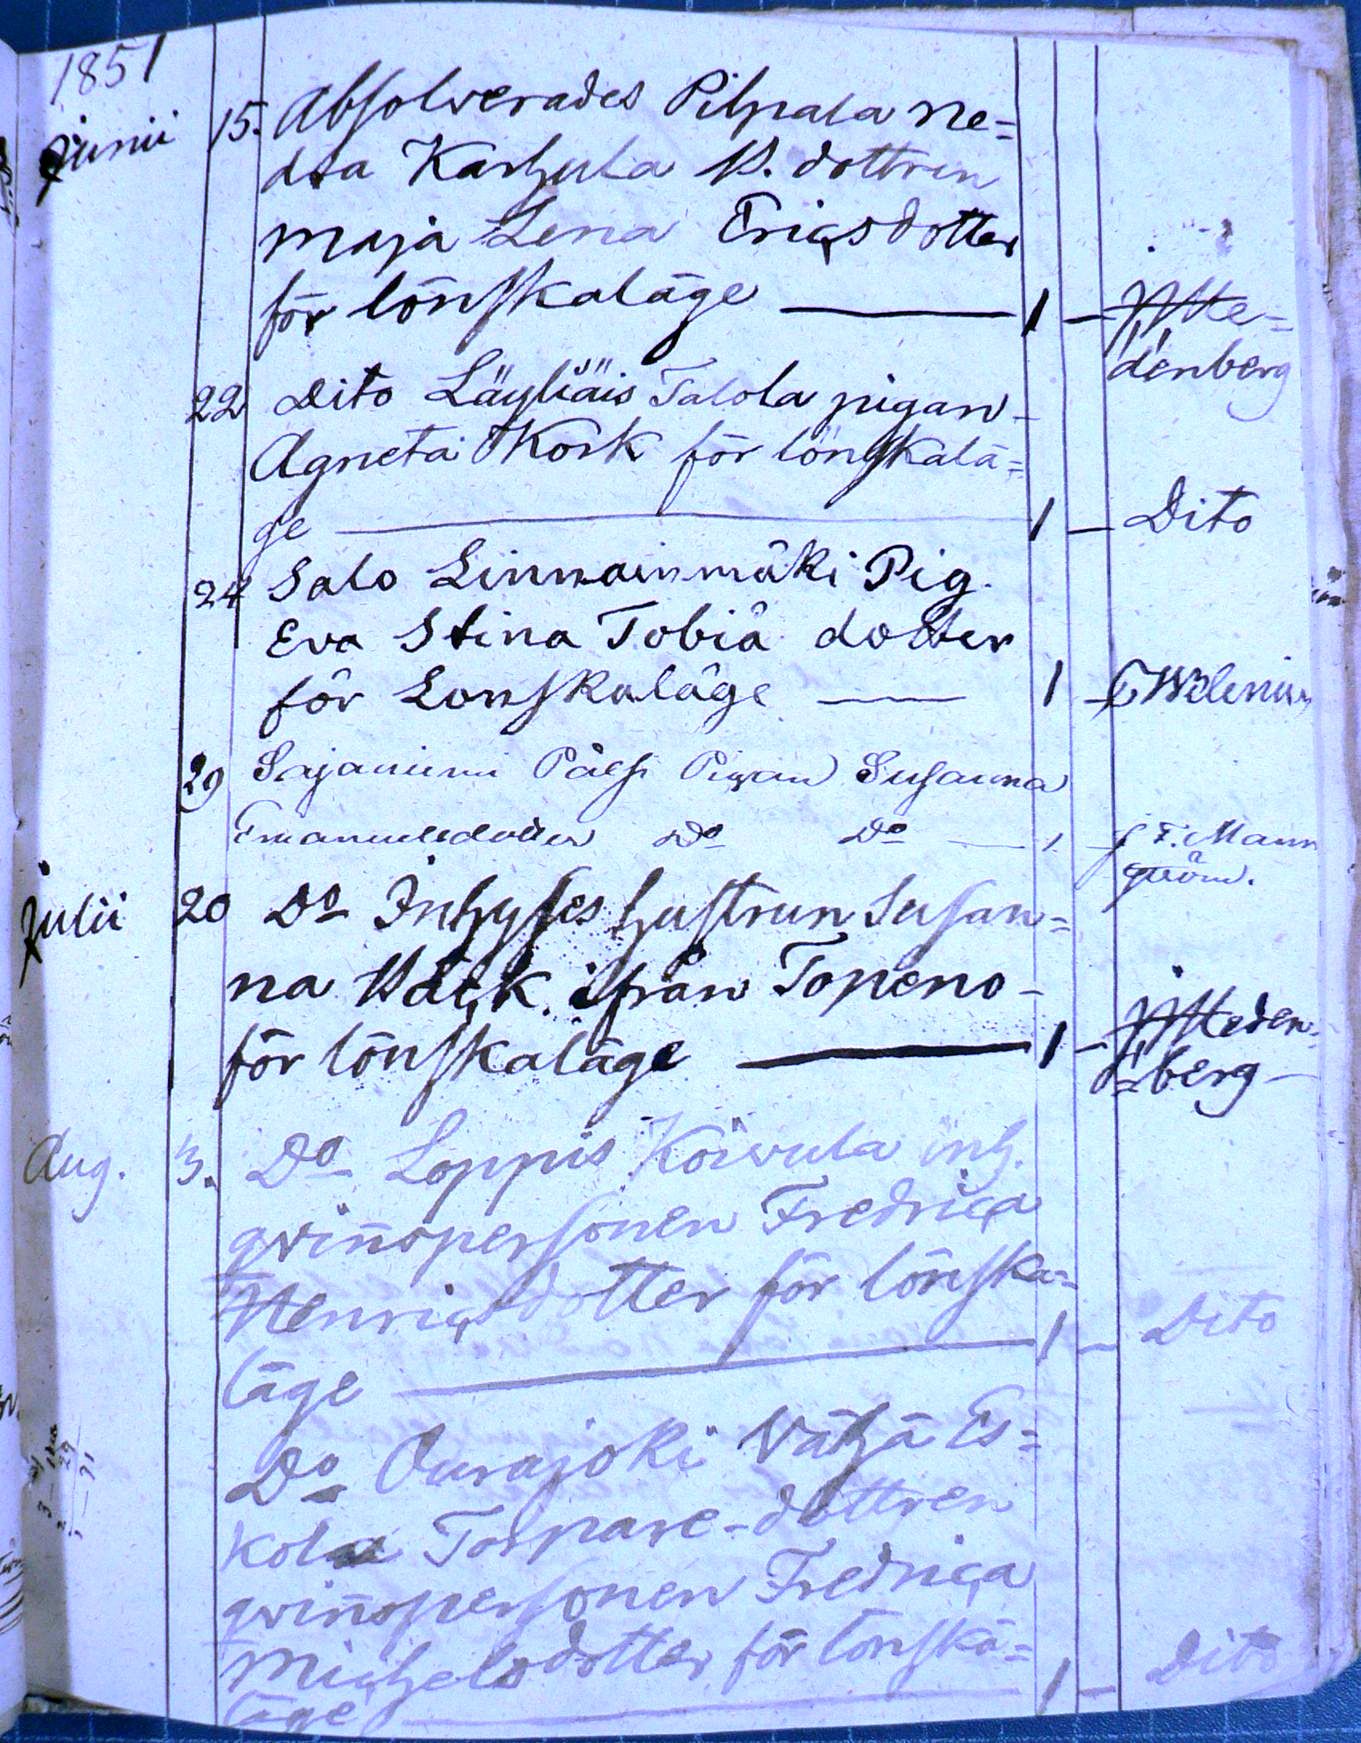 1851
Junii 15. Absolverades Pilpala Ne=
dra Karhula B. dottren
Maja Lena Ericsdotter
för lönskaläge — 1 – JJ Ste=
denberg
22 Dito Läyliäis Talola pigan
Agneta Kosk för lönskalä=
ge — 1 – Dito
24 Salo Linnainmäki Pig.
Eva Stina Tobiä dotter
för Lönskaläge — 1 – C Welenius
29 Sajaniemi Pigan Susanna
Emanuelsdotter Do Do — 1 – J F. Mann
ström.
Julii 20 Do Inhyses hustrun Susan=
na Bäck ifrån Topeno
för lönskaläge — 1 – JJ Steden=
berg
Aug. 3. Do Loppis Koivula inh.
qvinnspersonen Fredrica
Henricsdotter för lönska=
läge — 1 – Dito
Do Ourajoki Vähä Es=
kola Torpare-dottren
qvinnspersonen Fredrica
Michelsdotter för lönska=
läge — 1 – Dito